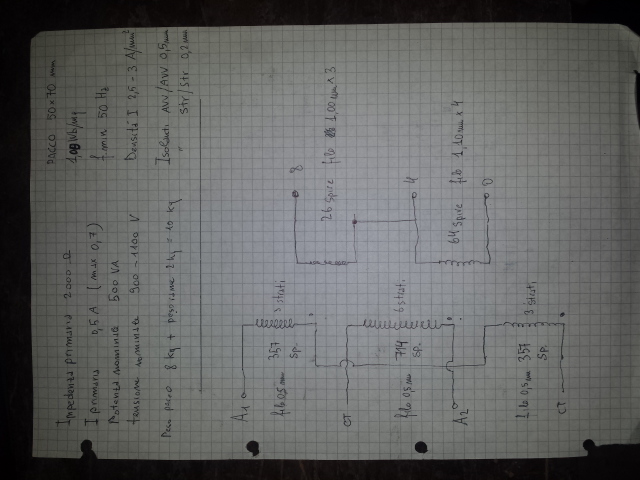 Impedenza primaria 2000 Ω
I primaria 0,5 A (max 0,7)
Potenza nominale 500 VA
tensione nominale 900-1100 V
Peso pacco 8 kg + possiamo 2 kg = 10 kg
pacco 50x70 mm
f min 50 Hz
Densità I 2,5 - 3 A/mm²
Isolanti AVV/AVV 0,5 mm
" Str/Str 0,2 mm
8
26 spire filo 1,00 mm x 3
4
64 spire filo 1,10 mm x 4
0
3 strati
A1
357
sp.
filo 0,5 mm
6 strati
CT
714
sp.
filo 0,5 mm
A2
3 strati
357
sp.
filo 0,5 mm
CT